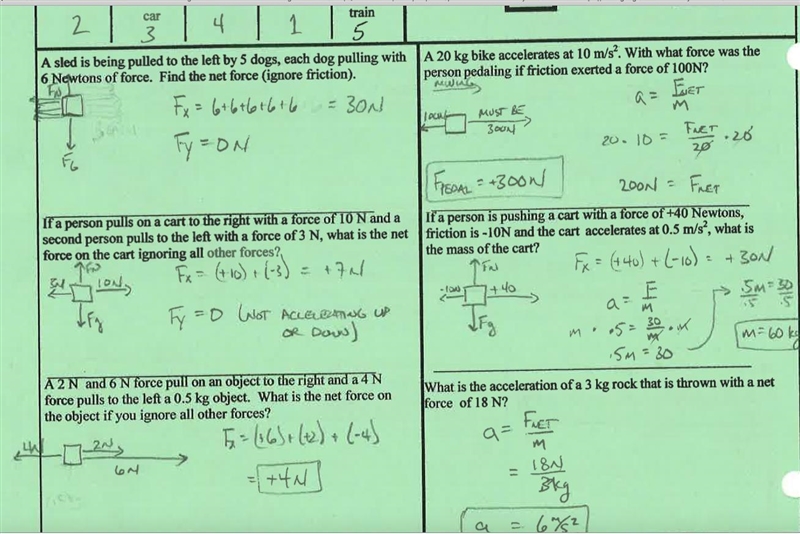 2
car
3
4
1
train
5
A sled is being pulled to the left by 5 dogs, each dog pulling with
6 Newtons of force. Find the net force (ignore friction).
FN
Fx = 6+6+6+6+6 = 30N
Fy = 0N
FG
If a person pulls on a cart to the right with a force of 10 N and a
second person pulls to the left with a force of 3 N, what is the net
force on the cart ignoring all other forces?
FN
Fx = (+10) + (-3) = +7N
3N
10N
Fg
Fy = 0 (NOT ACCELERATING UP
OR DOWN)
A 2 N and 6 N force pull on an object to the right and a 4 N
force pulls to the left a 0.5 kg object. What is the net force on
the object if you ignore all other forces?
4N
2N
6N
Fx = (+6) + (+2) + (-4)
= +4N
A 20 kg bike accelerates at 10 m/s². With what force was the
person pedaling if friction exerted a force of 100N?
a = FNET/M
100N
MUST BE
300N
20 · 10 = FNET/20 · 20
FPEDAL = +300N
200N = FNET
If a person is pushing a cart with a force of +40 Newtons,
friction is -10N and the cart accelerates at 0.5 m/s², what is
the mass of the cart?
FN
Fx = (+40) + (-10) = +30N
-10N
+40
Fg
a = F/M
.5M = 30
.5 .5
M · .5 = 30/M · M
M = 60 kg
.5M = 30
What is the acceleration of a 3 kg rock that is thrown with a net
force of 18 N?
a = FNET/M
= 18N/3kg
a = 6 m/s²